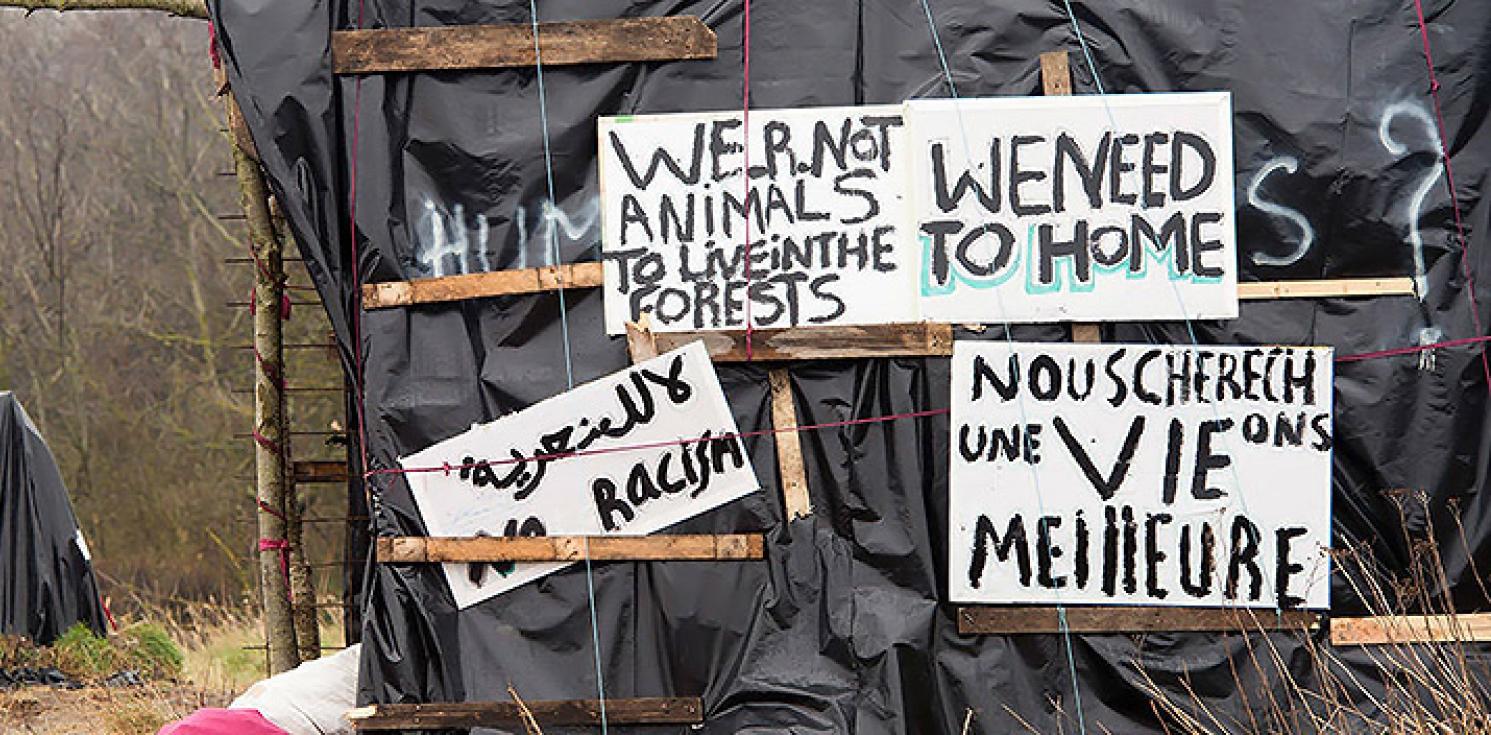 HUM
WE.R.NOT
ANIMALS
TO LIVEINTHE
FORESTS
WENEED
TO HOME
S?
لا للعنصرية
NO RACISM
NOUSCHERECH
UNE VIE ONS
MEIllEURE